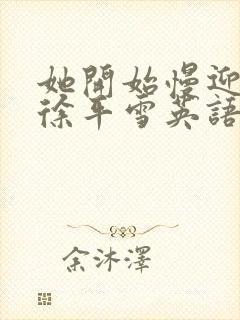 她開始慢迎
徐平雪英語
余沐澤